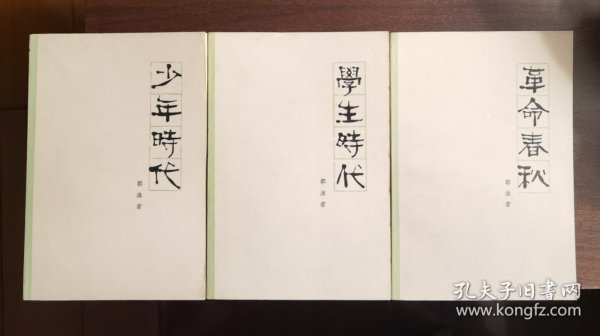 少年時代
郭沫若
學生時代
郭沫若
革命春秋
郭沫若
孔夫子旧书网
www.kongfz.com